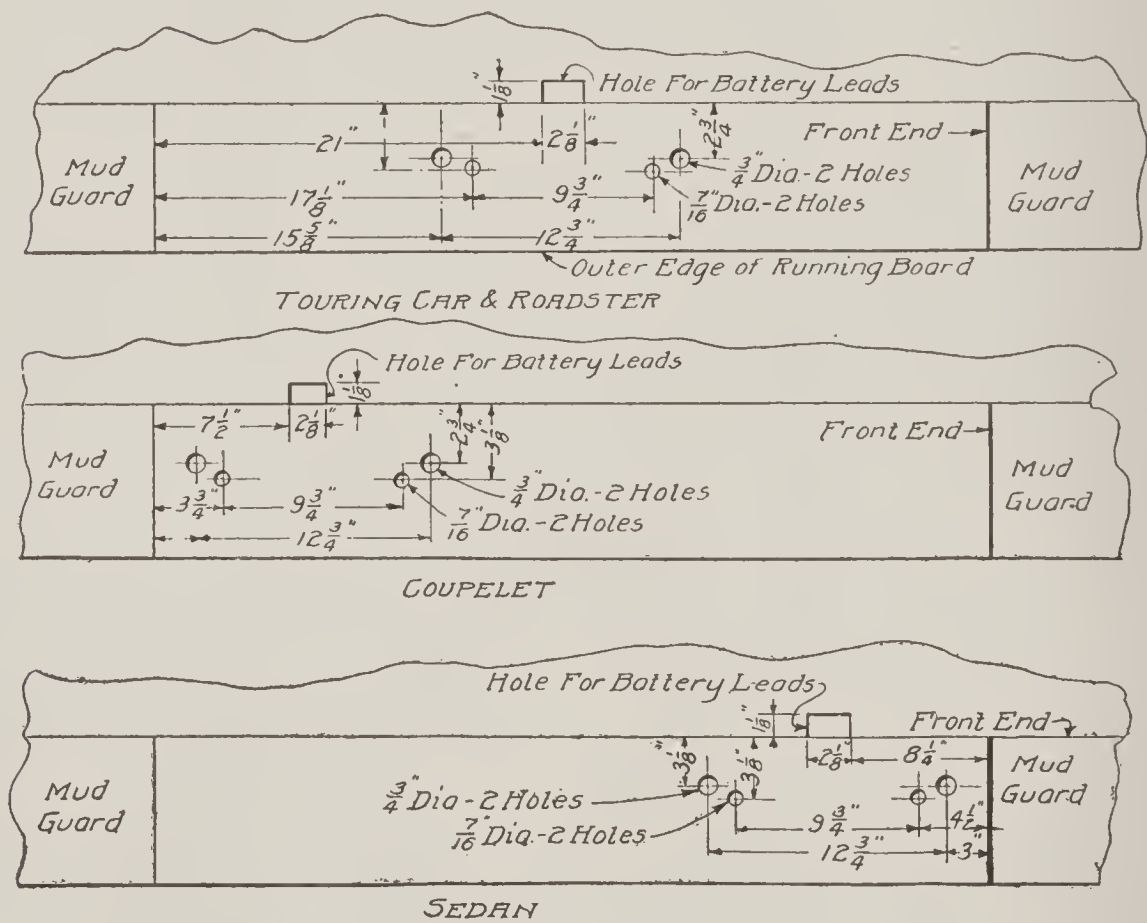 1 1/8"
Hole For Battery Leads
21"
2 1/8"
2 3/4"
Front End
Mud
Guard
3/4" Dia.-2 Holes
7/16" Dia.-2 Holes
Mud
Guard
17 1/8"
9 3/4"
15 5/8"
12 3/4"
Outer Edge of Running Board
TOURING CAR & ROADSTER
Hole For Battery Leads
1 1/8"
7 1/2"
2 1/8"
2 3/4"
3 1/8"
Front End
Mud
Guard
Mud
Guard
3 3/4"
9 3/4"
3/4" Dia.-2 Holes
7/16" Dia.-2 Holes
12 3/4"
COUPELET
Hole For Battery Leads
1 1/8"
Front End
3 1/8"
3 1/8"
2 1/8"
8 1/4"
Mud
Guard
Mud
Guard
3/4" Dia-2 Holes
7/16" Dia.-2 Holes
9 3/4"
4 1/2"
12 3/4"
3"
SEDAN